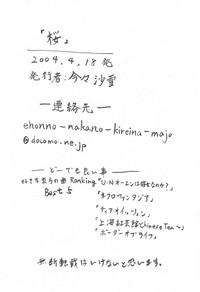 「桜」
2004.4.18 発
発行者:今々沙雪
ー連絡先ー
ehonno-nakano-kireina-majo
@docomo.ne.jp
ーどーでも良い事ー
好きな東方の曲Ranking「U.Nオーエンは彼女なのか?」
Best 5 「ネクロファンタジア」
「ティアオイエツォン」
「上海紅茶館 Chinese Tea〜」
「ボーダーオブライフ」
無断転載はいけないと思います。